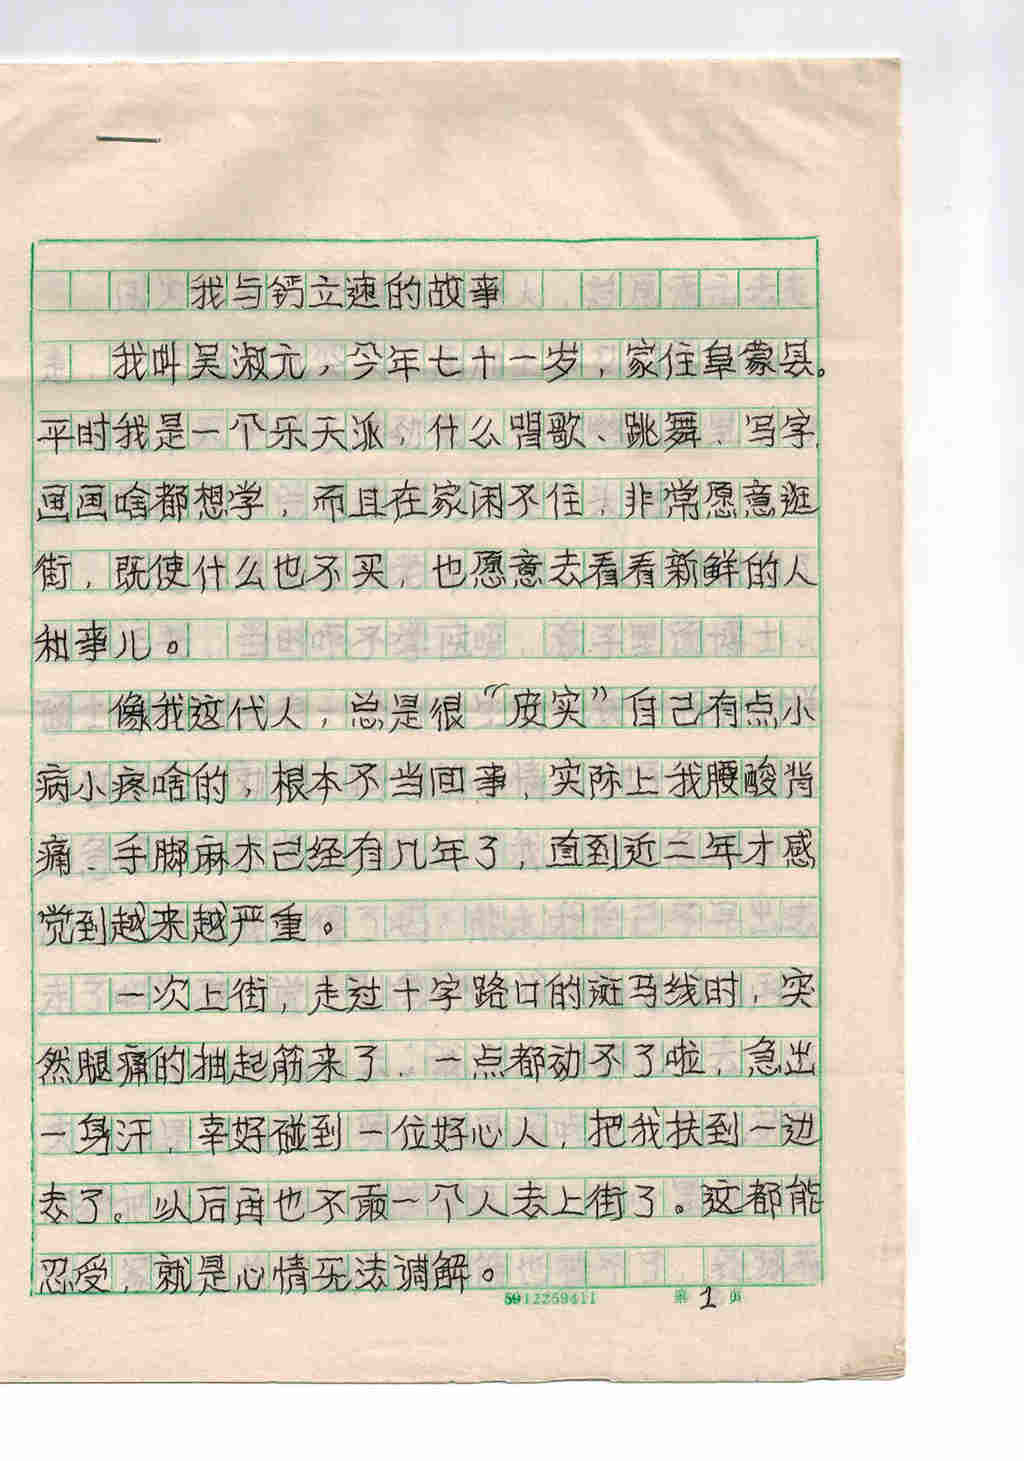 我与钙立速的故事
我叫吴淑元，今年七十一岁，家住阜蒙县。
平时我是一个乐天派，什么唱歌、跳舞、写字、
画画啥都想学，而且在家闲不住，非常愿意逛
街，既使什么也不买，也愿意去看看新鲜的人
和事儿。
像我这代人，总是很“皮实”自己有点小
病小疼啥的，根本不当回事，实际上我腰酸背
痛、手脚麻木已经有几年了，直到近二年才感
觉到越来越严重。
一次上街，走过十字路口的斑马线时，突
然腿痛的抽起筋来了、一点都动不了啦，急出
一身汗，幸好碰到一位好心人，把我扶到一边
去了。以后再也不敢一个人去上街了。这都能
忍受，就是心情无法调解。
5912259411 第 1 页